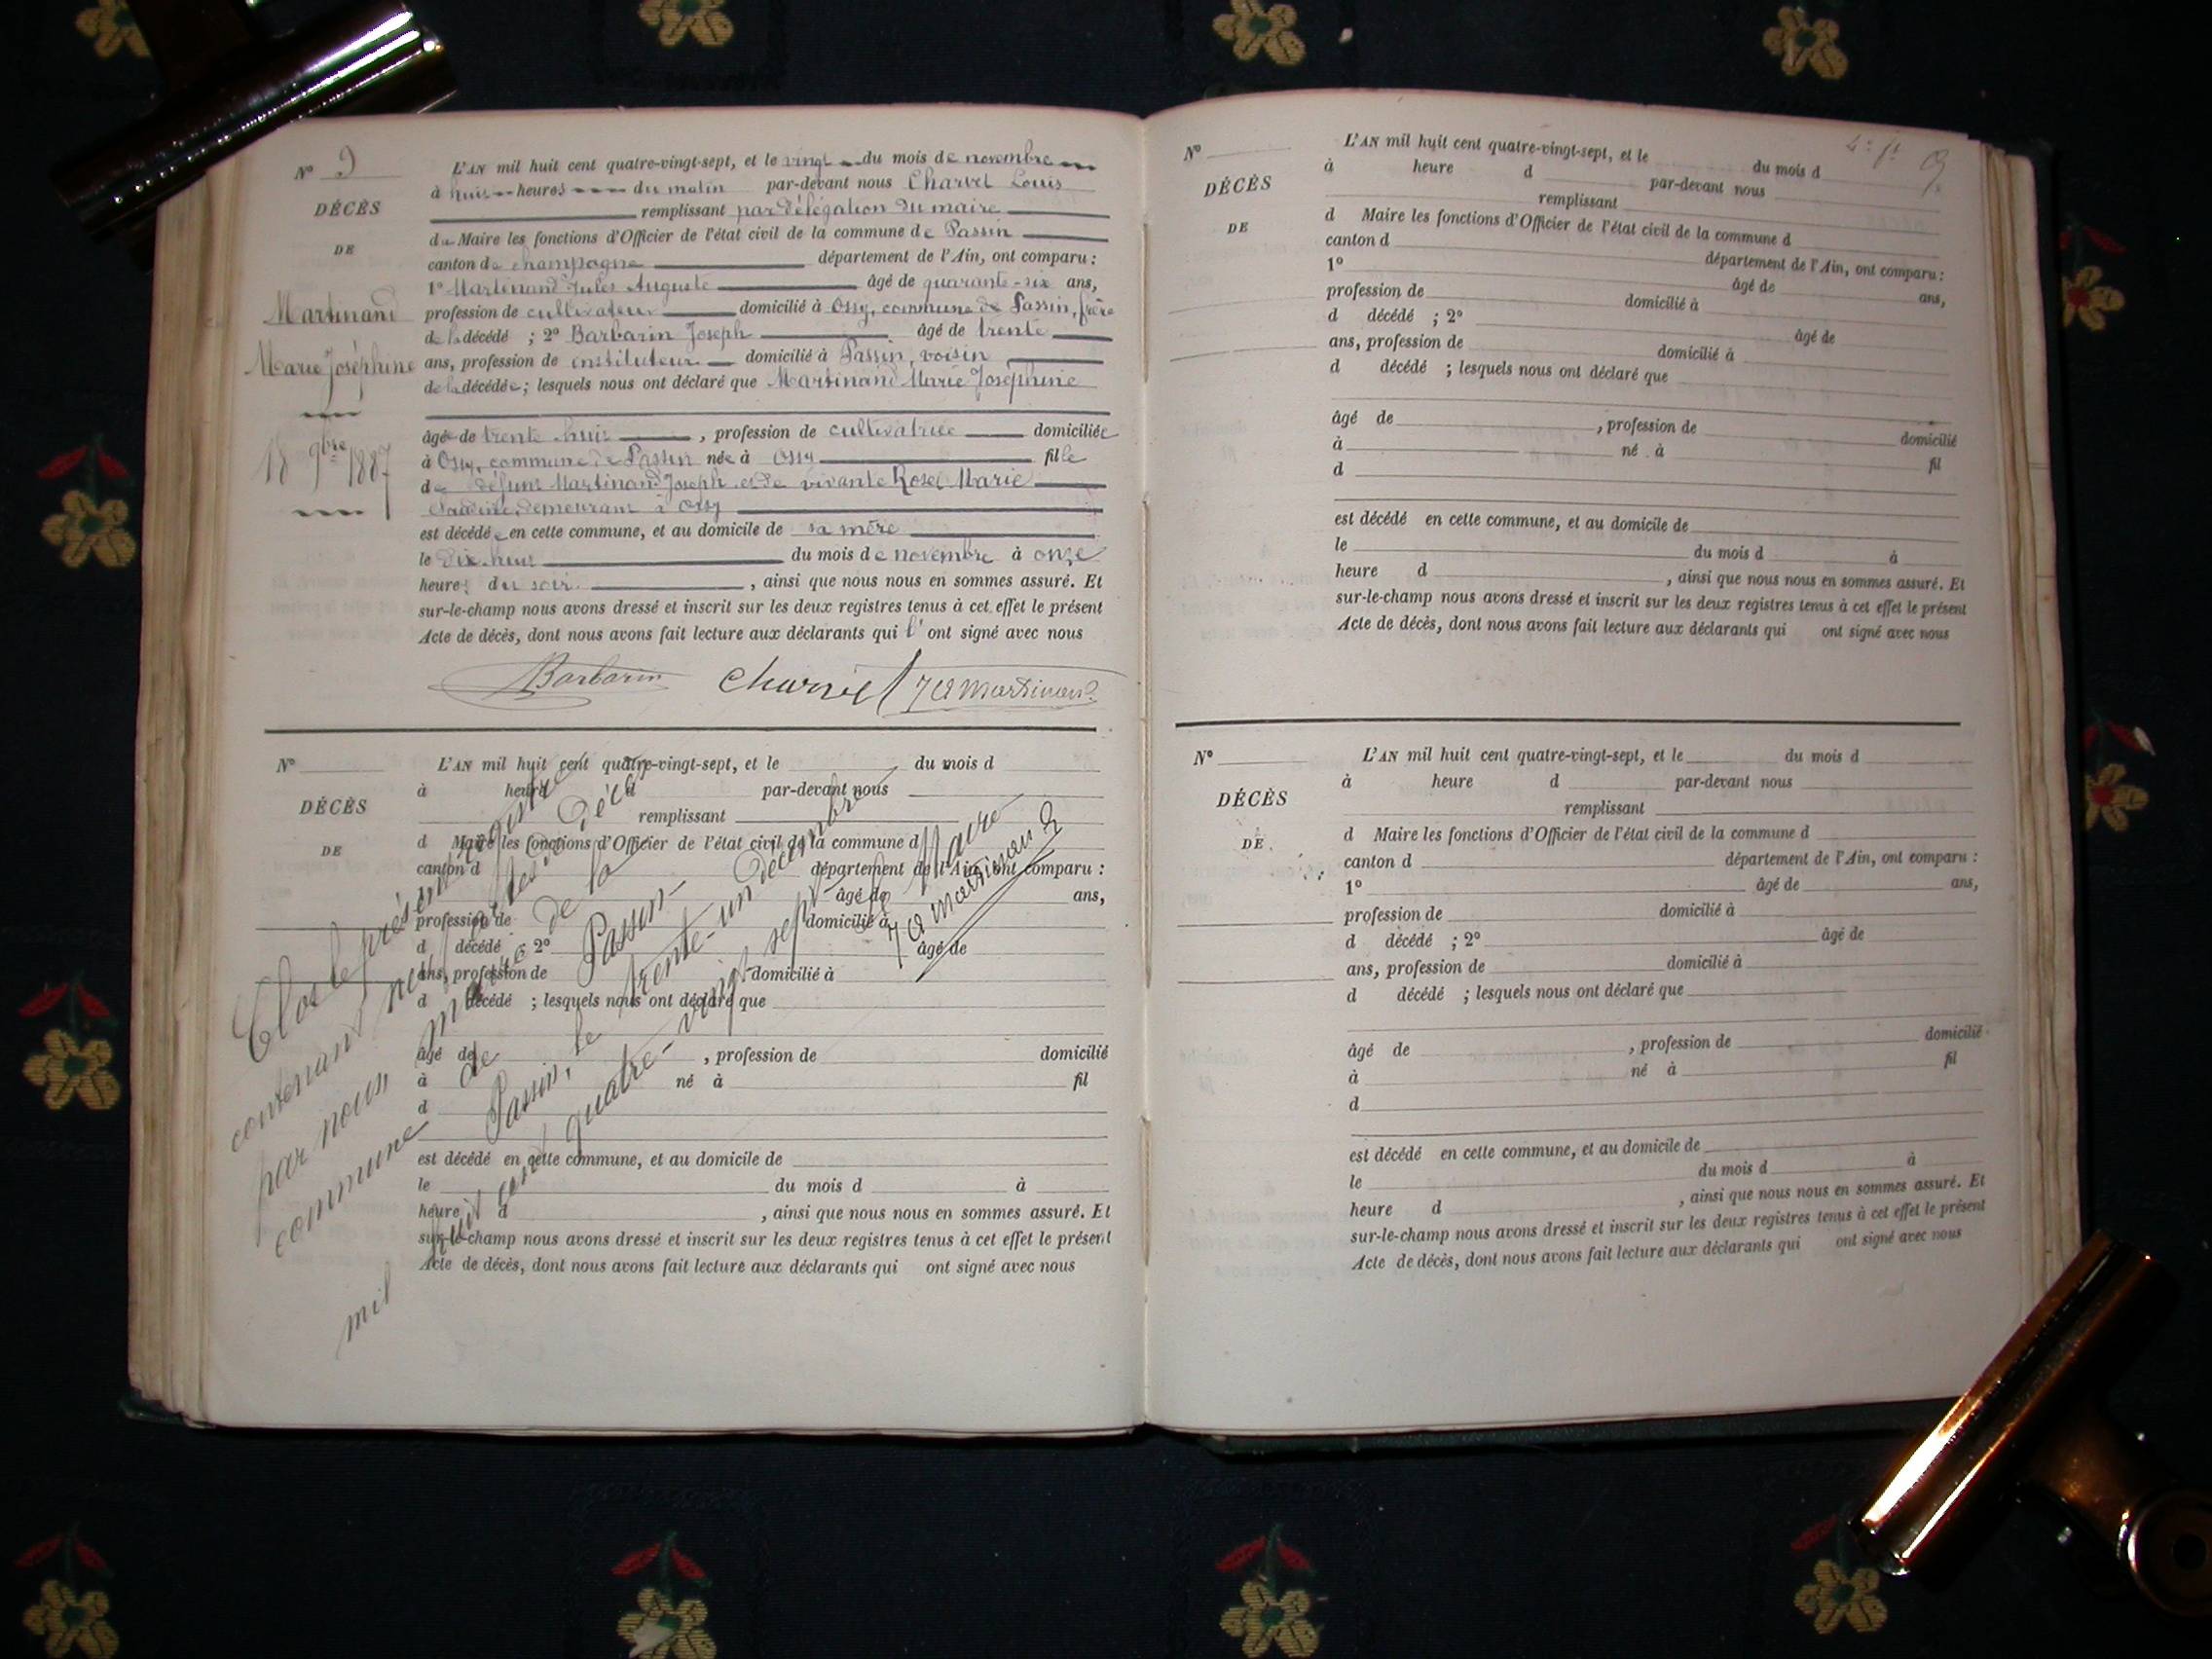 N° 9
DÉCÈS
DE
Martinand
Marie Joséphine
18 9bre 1887
L'AN mil huit cent quatre-vingt-sept, et le vingt du mois de novembre
à huit heures du matin par-devant nous Charvet Louis
remplissant par délégation du maire
du Maire les fonctions d'Officier de l'état civil de la commune de Passin
canton de champagne département de l'Ain, ont comparu :
1° Martinand Jules Auguste âgé de quarante-six ans,
profession de cultivateur domicilié à Ossy, commune de Passin, frère
de la décédé ; 2° Barbarin Joseph âgé de trente
ans, profession de instituteur domicilié à Passin, voisin
de la décédée ; lesquels nous ont déclaré que Martinand Marie Joséphine
âgée de trente huit , profession de cultivatrice domiciliée
à Ossy, commune de Passin née à Ossy fille
de défunt Martinand Joseph et de vivante Roset Marie
Claudine demeurant à Ossy
est décédée en cette commune, et au domicile de sa mère
le dix-huit du mois de novembre à onze
heures du soir , ainsi que nous nous en sommes assuré. Et
sur-le-champ nous avons dressé et inscrit sur les deux registres tenus à cet effet le présent
Acte de décès, dont nous avons fait lecture aux déclarants qui l'ont signé avec nous
Barbarin Charvet JA Martinand
N°
DÉCÈS
DE
L'AN mil huit cent quatre-vingt-sept, et le du mois d
à heure d par-devant nous
remplissant
d Maire les fonctions d'Officier de l'état civil de la commune d
canton d département de l'Ain, ont comparu :
âgé de ans,
profession de domicilié à
d décédé ; 2° âgé de
ans, profession de domicilié à
d décédé ; lesquels nous ont déclaré que
âgé de , profession de domicilié
à né à fil
d
est décédé en cette commune, et au domicile de
le du mois d à
heure d , ainsi que nous nous en sommes assuré. Et
sur-le-champ nous avons dressé et inscrit sur les deux registres tenus à cet effet le présent
Acte de décès, dont nous avons fait lecture aux déclarants qui ont signé avec nous
Clos le présent registre
contenant neuf actes de décès
par nous, maire de la
commune de Passin
Passin, le trente-un décembre
mil huit cent quatre-vingt sept
le Maire
JA Martinand
N°
DÉCÈS
DE
L'AN mil huit cent quatre-vingt-sept, et le du mois d
à heure d par-devant nous
remplissant
d Maire les fonctions d'Officier de l'état civil de la commune d
canton d département de l'Ain, ont comparu :
1° âgé de ans,
profession de domicilié à
d décédé ; 2° âgé de
ans, profession de domicilié à
d décédé ; lesquels nous ont déclaré que
âgé de , profession de domicilié
à né à fil
d
est décédé en cette commune, et au domicile de
le du mois d à
heure d , ainsi que nous nous en sommes assuré. Et
sur-le-champ nous avons dressé et inscrit sur les deux registres tenus à cet effet le présent
Acte de décès, dont nous avons fait lecture aux déclarants qui ont signé avec nous
N°
DÉCÈS
DE
L'AN mil huit cent quatre-vingt-sept, et le du mois d
à heure d par-devant nous
remplissant
d Maire les fonctions d'Officier de l'état civil de la commune d
canton d département de l'Ain, ont comparu :
1° âgé de ans,
profession de domicilié à
d décédé ; 2° âgé de
ans, profession de domicilié à
d décédé ; lesquels nous ont déclaré que
âgé de , profession de domicilié
à né à fil
d
est décédé en cette commune, et au domicile de
le du mois d à
heure d , ainsi que nous nous en sommes assuré. Et
sur-le-champ nous avons dressé et inscrit sur les deux registres tenus à cet effet le présent
Acte de décès, dont nous avons fait lecture aux déclarants qui ont signé avec nous